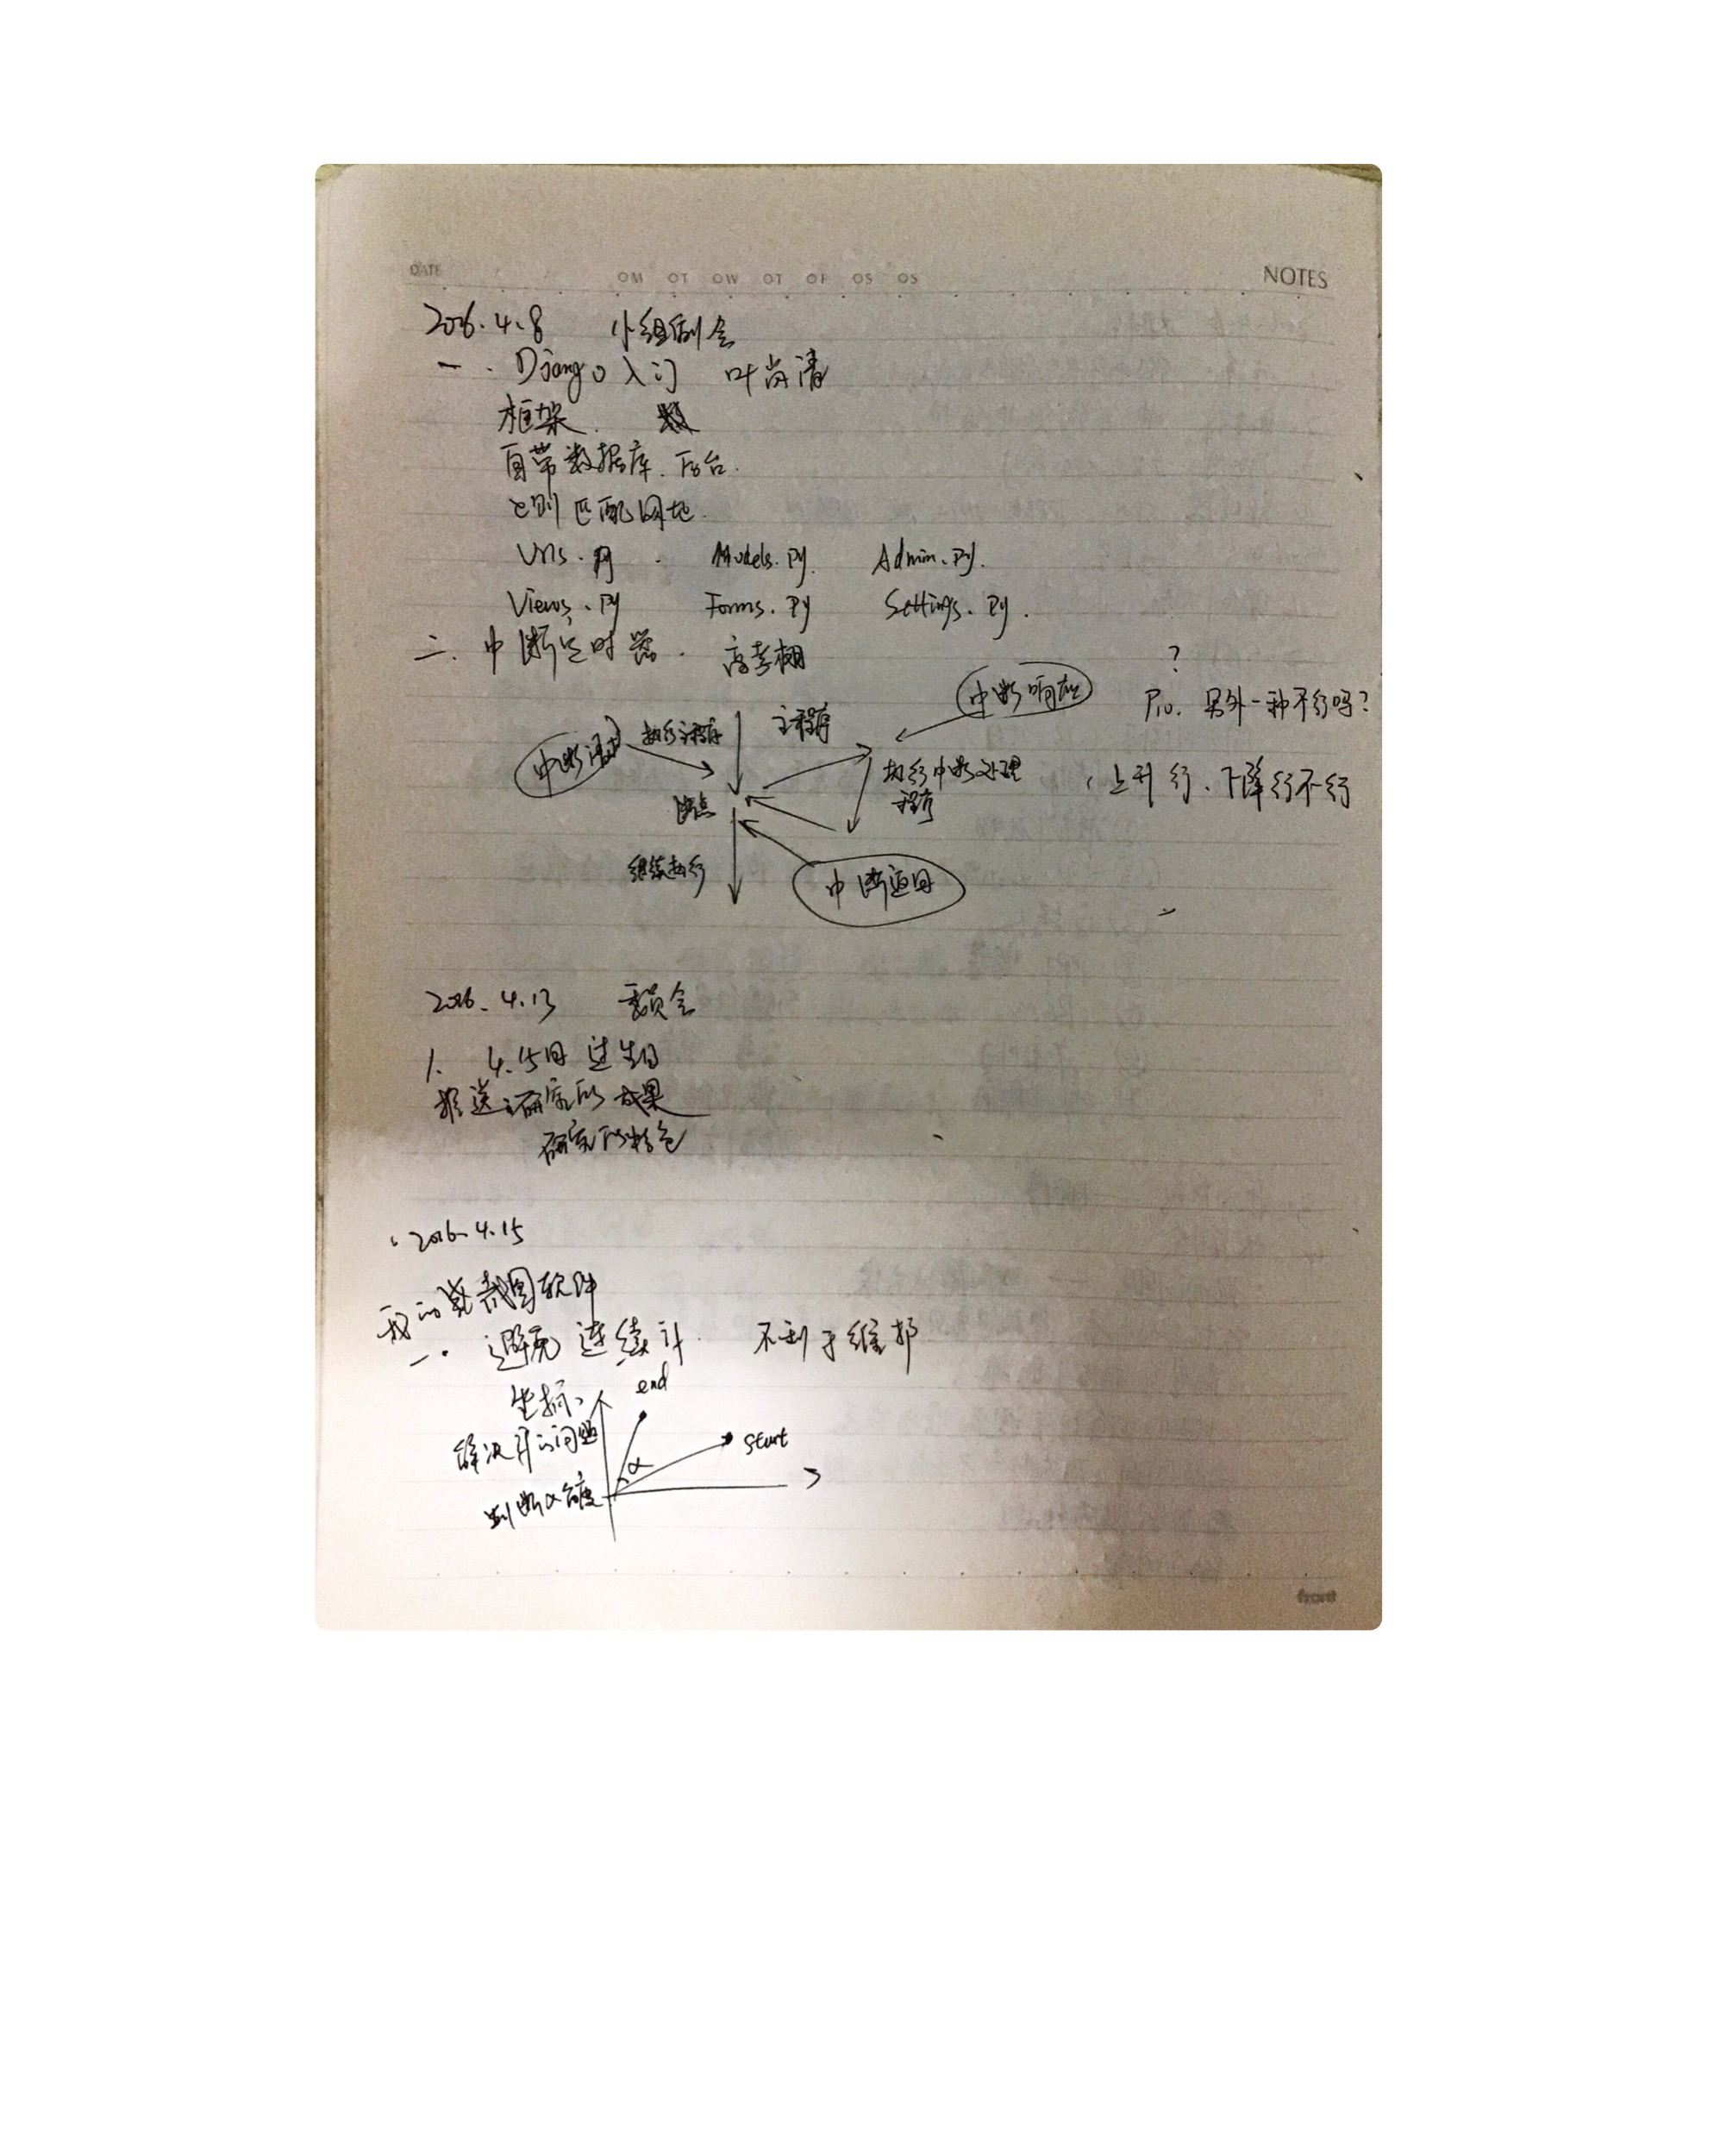 DATE OM OT OW OT OF OS OS NOTES
2016.4.8 小组例会
一. Django入门 叶尚清
框架.
自带数据库.后台.
正则匹配网址.
Urls.py Models.py. Admin.py.
Views.py Forms.py Settings.py.
二. 中断定时器.
?
中断响应
P10. 另外一种不行吗?
中断请求 执行主程序 主程序
执行中断处理
程序
上升行、下降行不行
断点
继续执行
中断返回
2016.4.13 委员会
1. 4.15日 过生日
推送:研究所成果
研究所特色
2016.4.15
我的截图软件
一. 避免连续 不利于维护
坐标、 end
解决 的问题
start
α
判断α角度
front